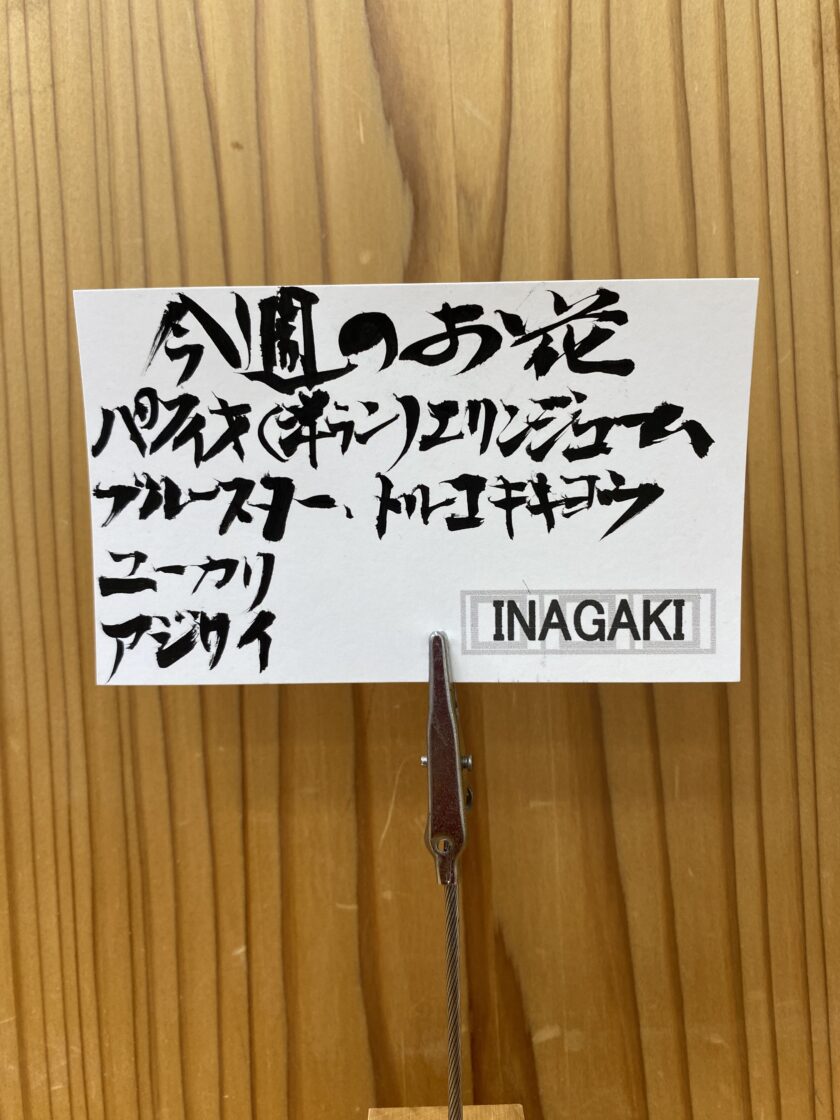 今週のお花
パフィオ(洋ラン)エリンジューム
ブルースター、トルコキキョウ
ユーカリ
アジサイ
INAGAKI